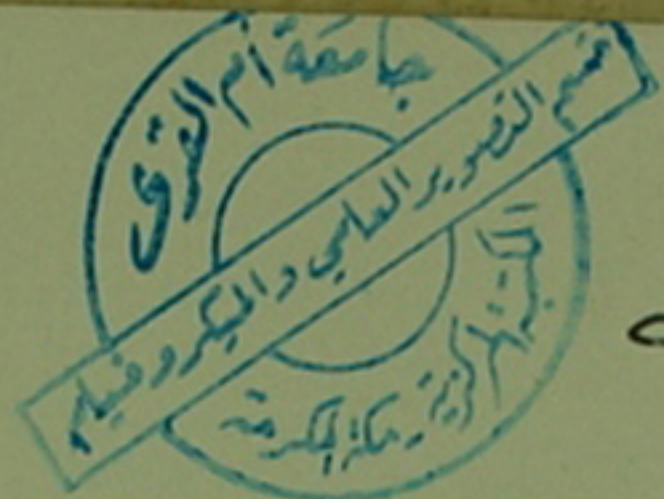 جامعة أم القرى
قسم التصوير العلمي والميكروفيلم
المكتبة المركزية - مكة المكرمة